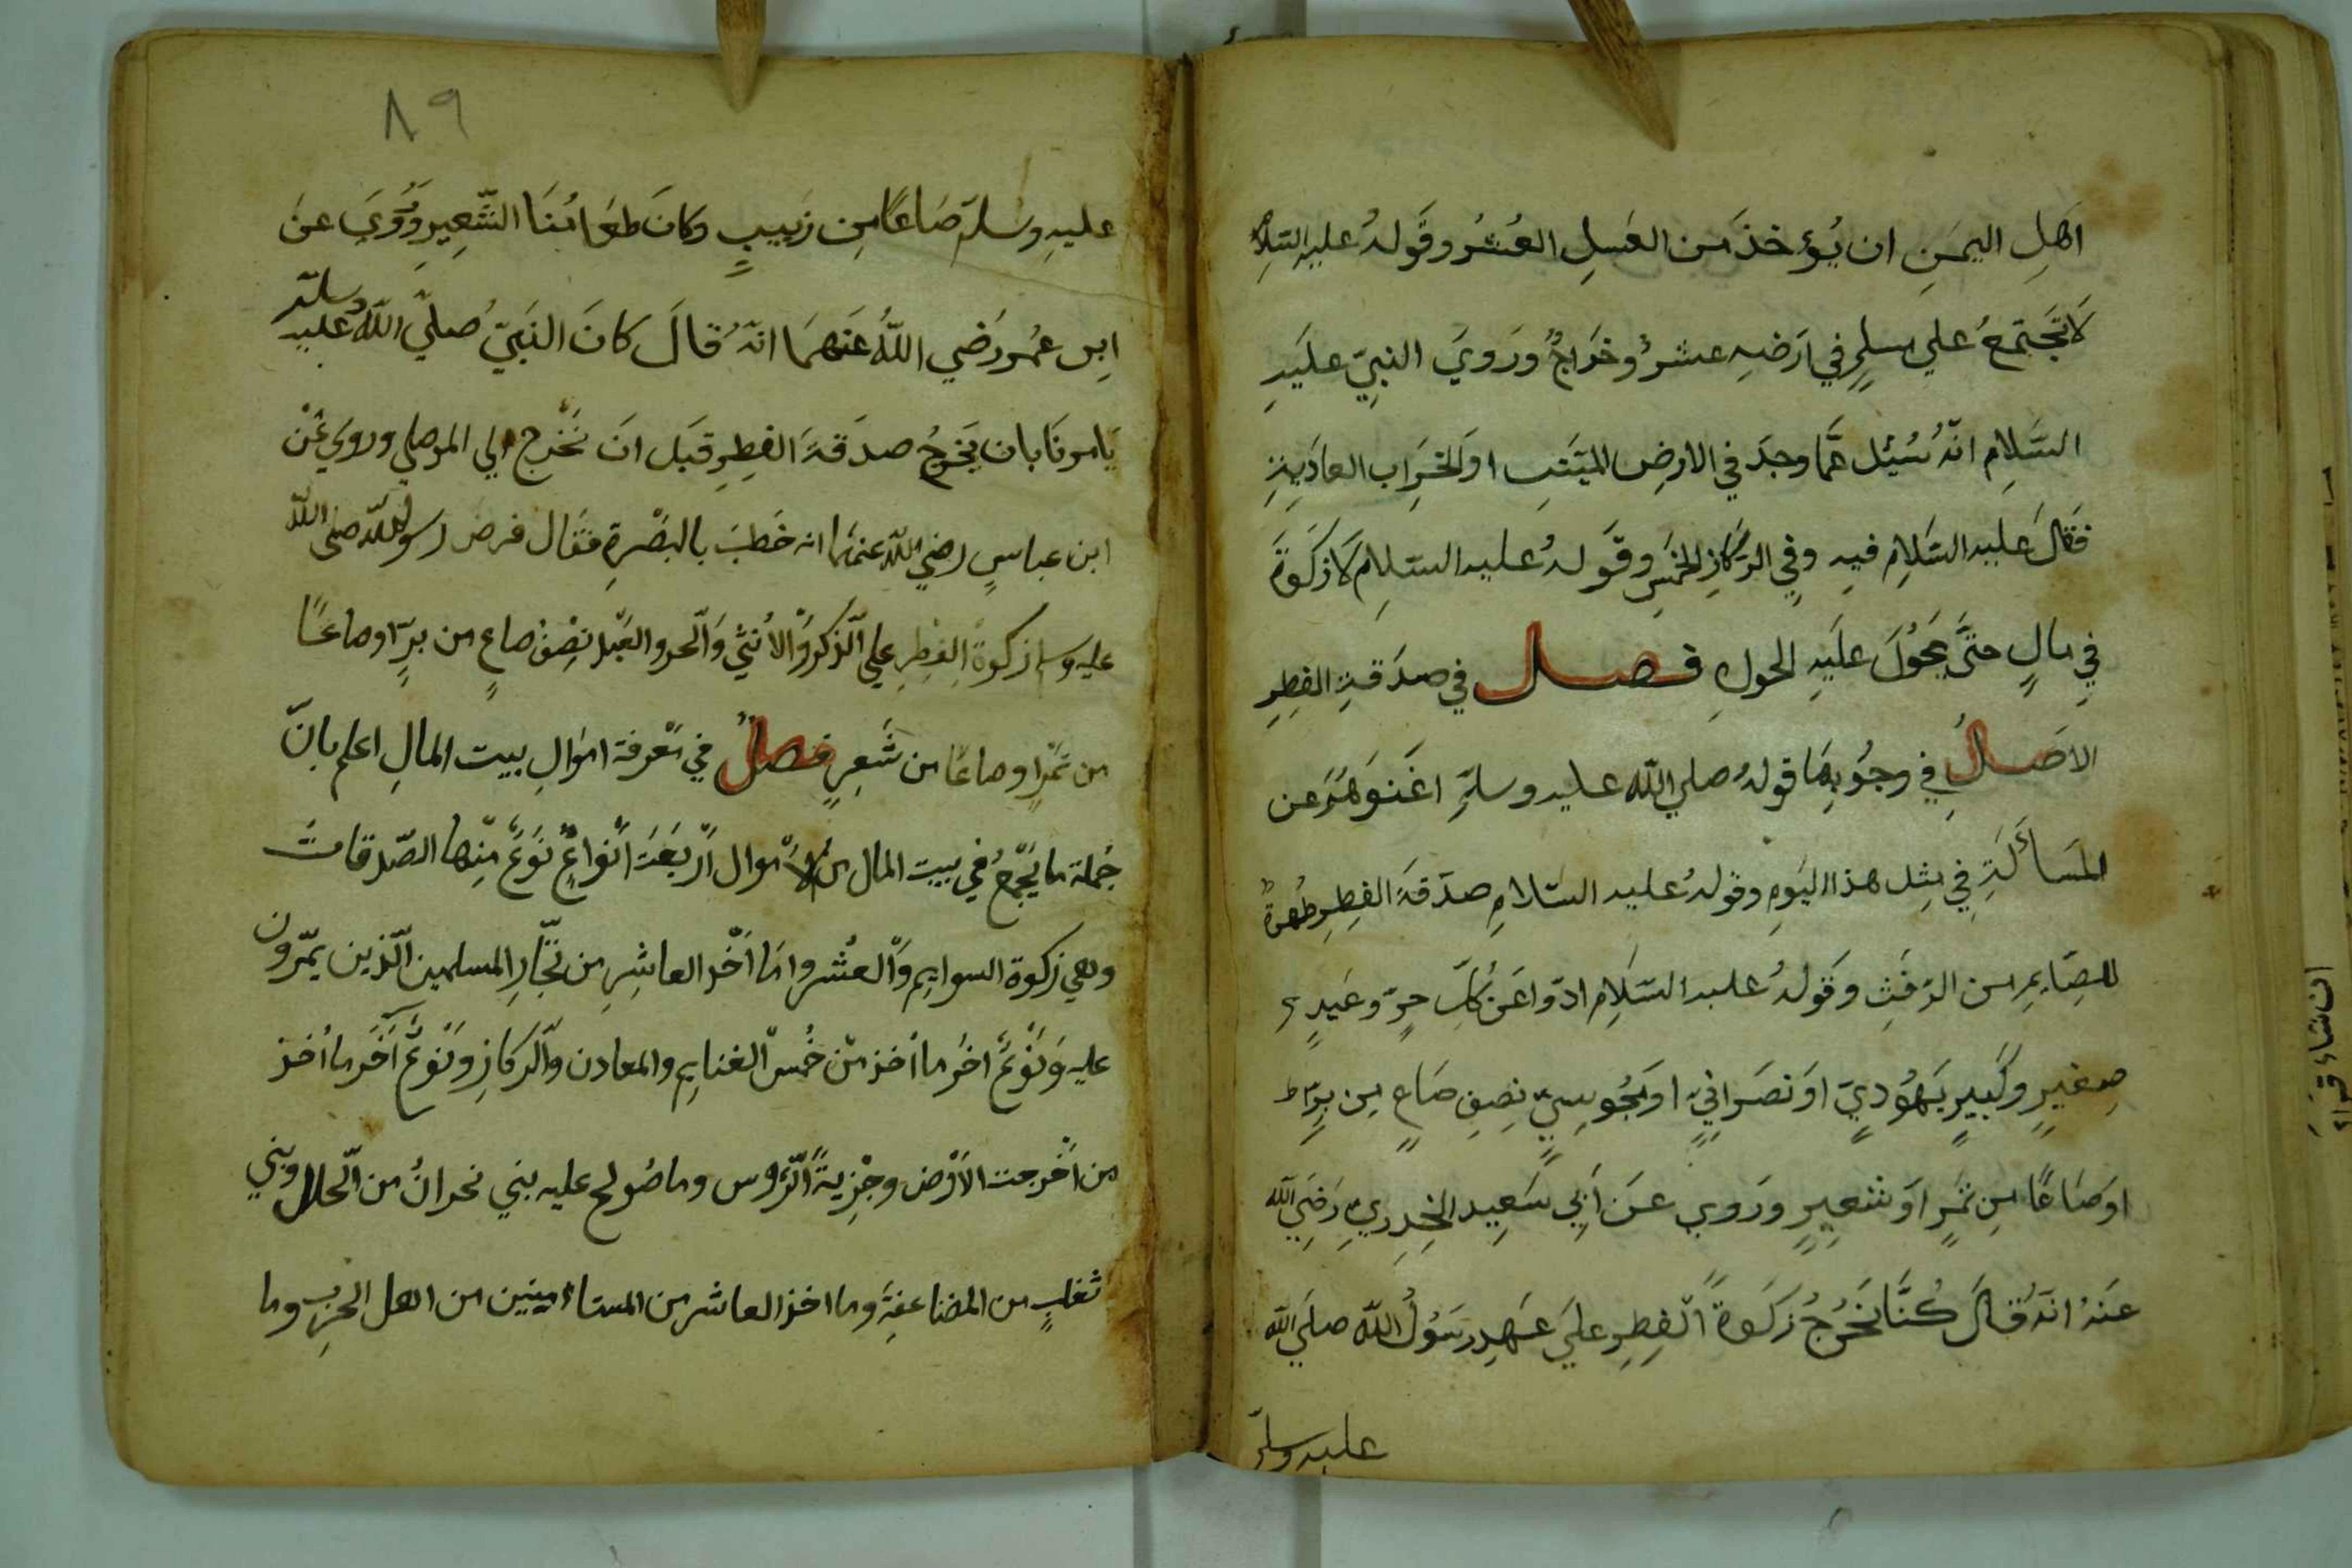 اهلِ اليمنِ ان يُؤخذَ من العسلِ العُشرُ وقَولهُ عليهِ السّلام
لا تجتمعُ علي مسلمٍ في ارَضهِ عشرٌ وخراجٌ ورَويَ النبيّ عليَهِ
السّلامِ انّهُ سُئِل عمّا وجدَ في الارضِ الميّتهِ اوَ الخَرِابِ العادَيهِ
فَقالَ عليه السّلام فيه وفي الرّكازِ الخمسِ وقَولهُ عليه السّلام لا زكوةَ
في مالٍ حتّي يحُولَ علَيهِ الحولِ فصل في صدَقةِ الفِطِرِ
الاصَلُ في وجُوبِها قولهُ صلي اللّه عليه وسلّم اغنَوهُم عن
المسَأَلَةِ في مِثِل هذا اليَومِ وقولهُ عليه السّلامِ صدقةَ الفِطِرِ طُهرةٌ
للصِّايمِ من الرّفثِ وقَولهُ عليه السّلام ادّوا عَن كُلّ حرٍّ وعَبدٍ
صِغيرٍ وكَبيرٍ يهُوديٍّ اوَ نصَرانيٍّ اوَ مجُوسيٍّ نِصِفِ صَاعٍ مِن بُرٍّ
اوَ صَاعًا مِن تمَرٍ اوَ شَعِيرٍ ورَوي عَن اَبي سَعِيد الخِدِريِّ رَضِيَ اللّه
عَنهُ انّهُ قالَ كُنّا نخُرجُ زَكوةَ الفِطِرِ عليَ عَهدِ رسَوُلُ اللّه صلَي اللّه
عليه وسلّم
٨٩
عليهِ وسلمّ صَاعًا مِن زبَيبٍ وكانَ طعَامُنَا الشَّعِيرِ ورُويَ عنَ
ابِن عُمر رَضي اللّهُ عَنهمَا انّهُ قالَ كانَ النبَيّ صليّ اللّهُ عليه وسلّم
يَامرنَا بان نخرجُ صدَقةَ الفِطِرِ قبَل انَ نخَرج الي المصلي وروي عَن
ابن عباسٍ رضي اللّه عنهمَا انه خَطبَ بالبَصْرةِ فقَال فرض رسول اللّه صلى اللّه
عليه وسلم زكوةَ الفِطِرِ علي الذّكر وَالاُنثيَ وَالحر والعَبْد نِصْفْ صاعٍ من برٍّ او صاعًا
من تمْرٍ او صاعًا من شَعِرٍ فصلُ في مَعْرفة اموَالِ بيت المالِ اعلم بانّ
جُملة ما يَجْمعُ في بيت المال من الاَمْوال اَرْبَعَةَ اَنْواعٍ نَوعٌ مِنْها الصّدقاتَ
وهي زكوة السوايم وَالعشْر وامَا اَخْذ العاشِرِ من تجّارِ المسلمين الّذين يمّرون
عليه وَنَوْعٌ اخر ما اُخذ منْ خُمسْ الغنايم والمعادن وَالركازِ وَنَوعٌ آخَر ما اُخذ
من اَخْرجت الاَرْض وجْزيةَ الرّؤس وما صُولح عليه بني نجرانُ من الحلل وبني
تغلبٍ من المضاعفَة وما اخذ العاشر من المستاءمينين من اهل الحربِ وما